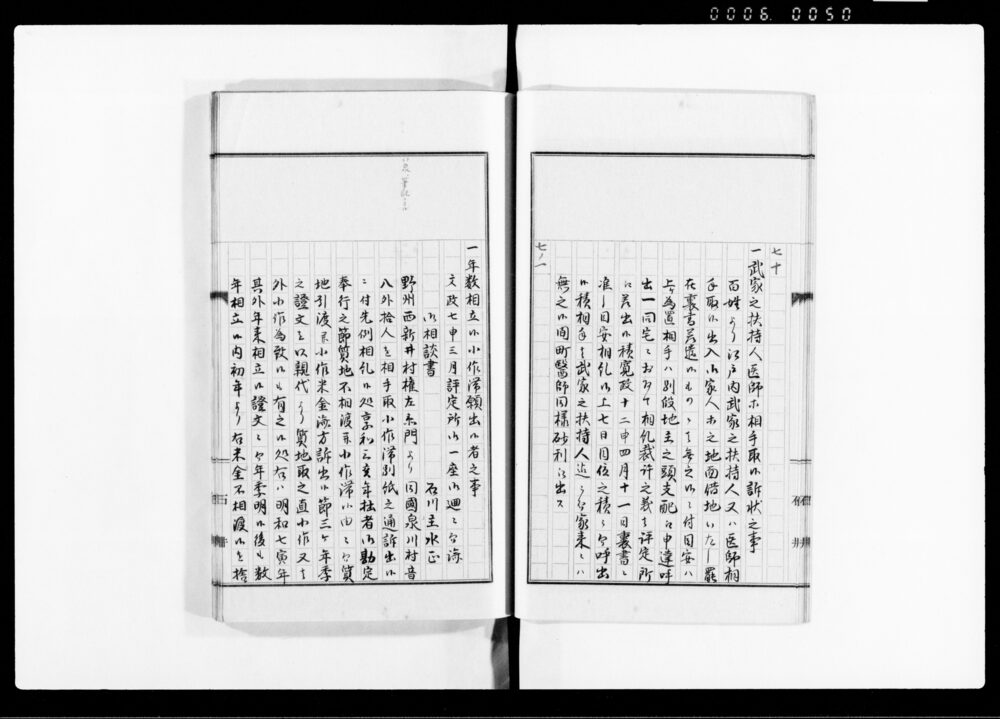 0006. 0050
七十
一武家之扶持人医師ホ相手取候訴状之事
百姓ゟ江戸内武家之扶持人又ハ医師相
手取候出入御家人ホ之地面借地いたし罷
在裏書差遣候もの
上ヶ為置相手ハ別段地主之頭支配江申達呼
出一同宅ニおゐて相糺裁許之義ハ評定所
江差出候積寛政十二申四月十一日裏書ニ
准し目安相糺候上七日目位之積ニ而呼出
候積相手武家之扶持人迄ニ而家来ニハ
無之候間町醫師同様砂利江出ス
七ノ一
一年数相立候小作滞願出候者之事
文政七申三月評定所御一座御廻ニ而済
御相談書
石川主水正
野州西新井村権左衛門ゟ同國泉川村音
八外拾人を相手取小作滞別紙之通訴出候
ニ付先例相糺候処享和三亥年拙者御勘定
奉行之節質地不相渡并小作滞候由ニ而質
地引渡并小作米金済方訴出候節三ヶ年季
之證文を以親代ゟ質地取之直小作又は
外小作為致候も有之候処右ハ明和七寅年
其外年来相立候證文ニ而年季明候後も数
年相立候内初年ゟ右米金不相渡候を捨